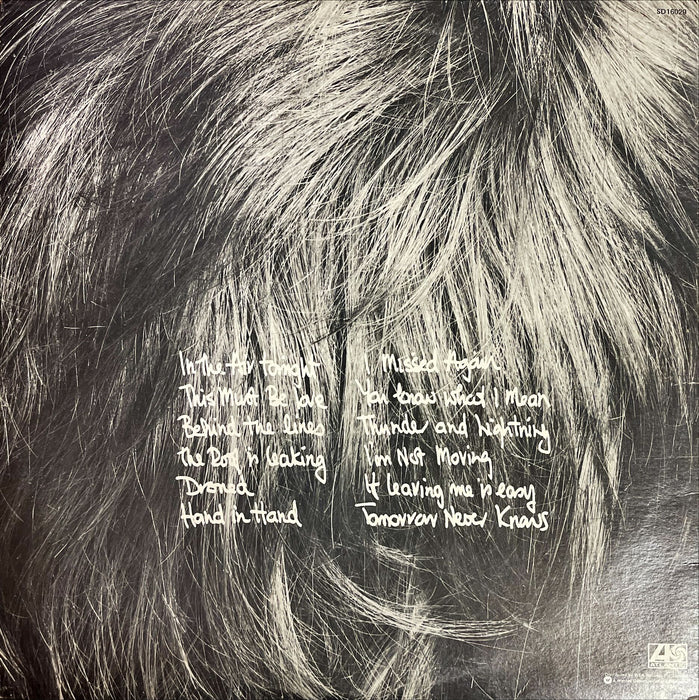 SD16029
In The Air Tonight
This Must Be Love
Behind The lines
The Roof is leaking
Droned
Hand in Hand
I Missed Again
You know what I Mean
Thunder and Lightning
I'm Not Moving
If leaving me is easy
Tomorrow Never Knows
ATLANTIC